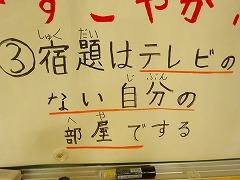 すこやか
③宿題はテレビの
しゅく だい
ない自分の
じ ぶん
部屋でする
へ や